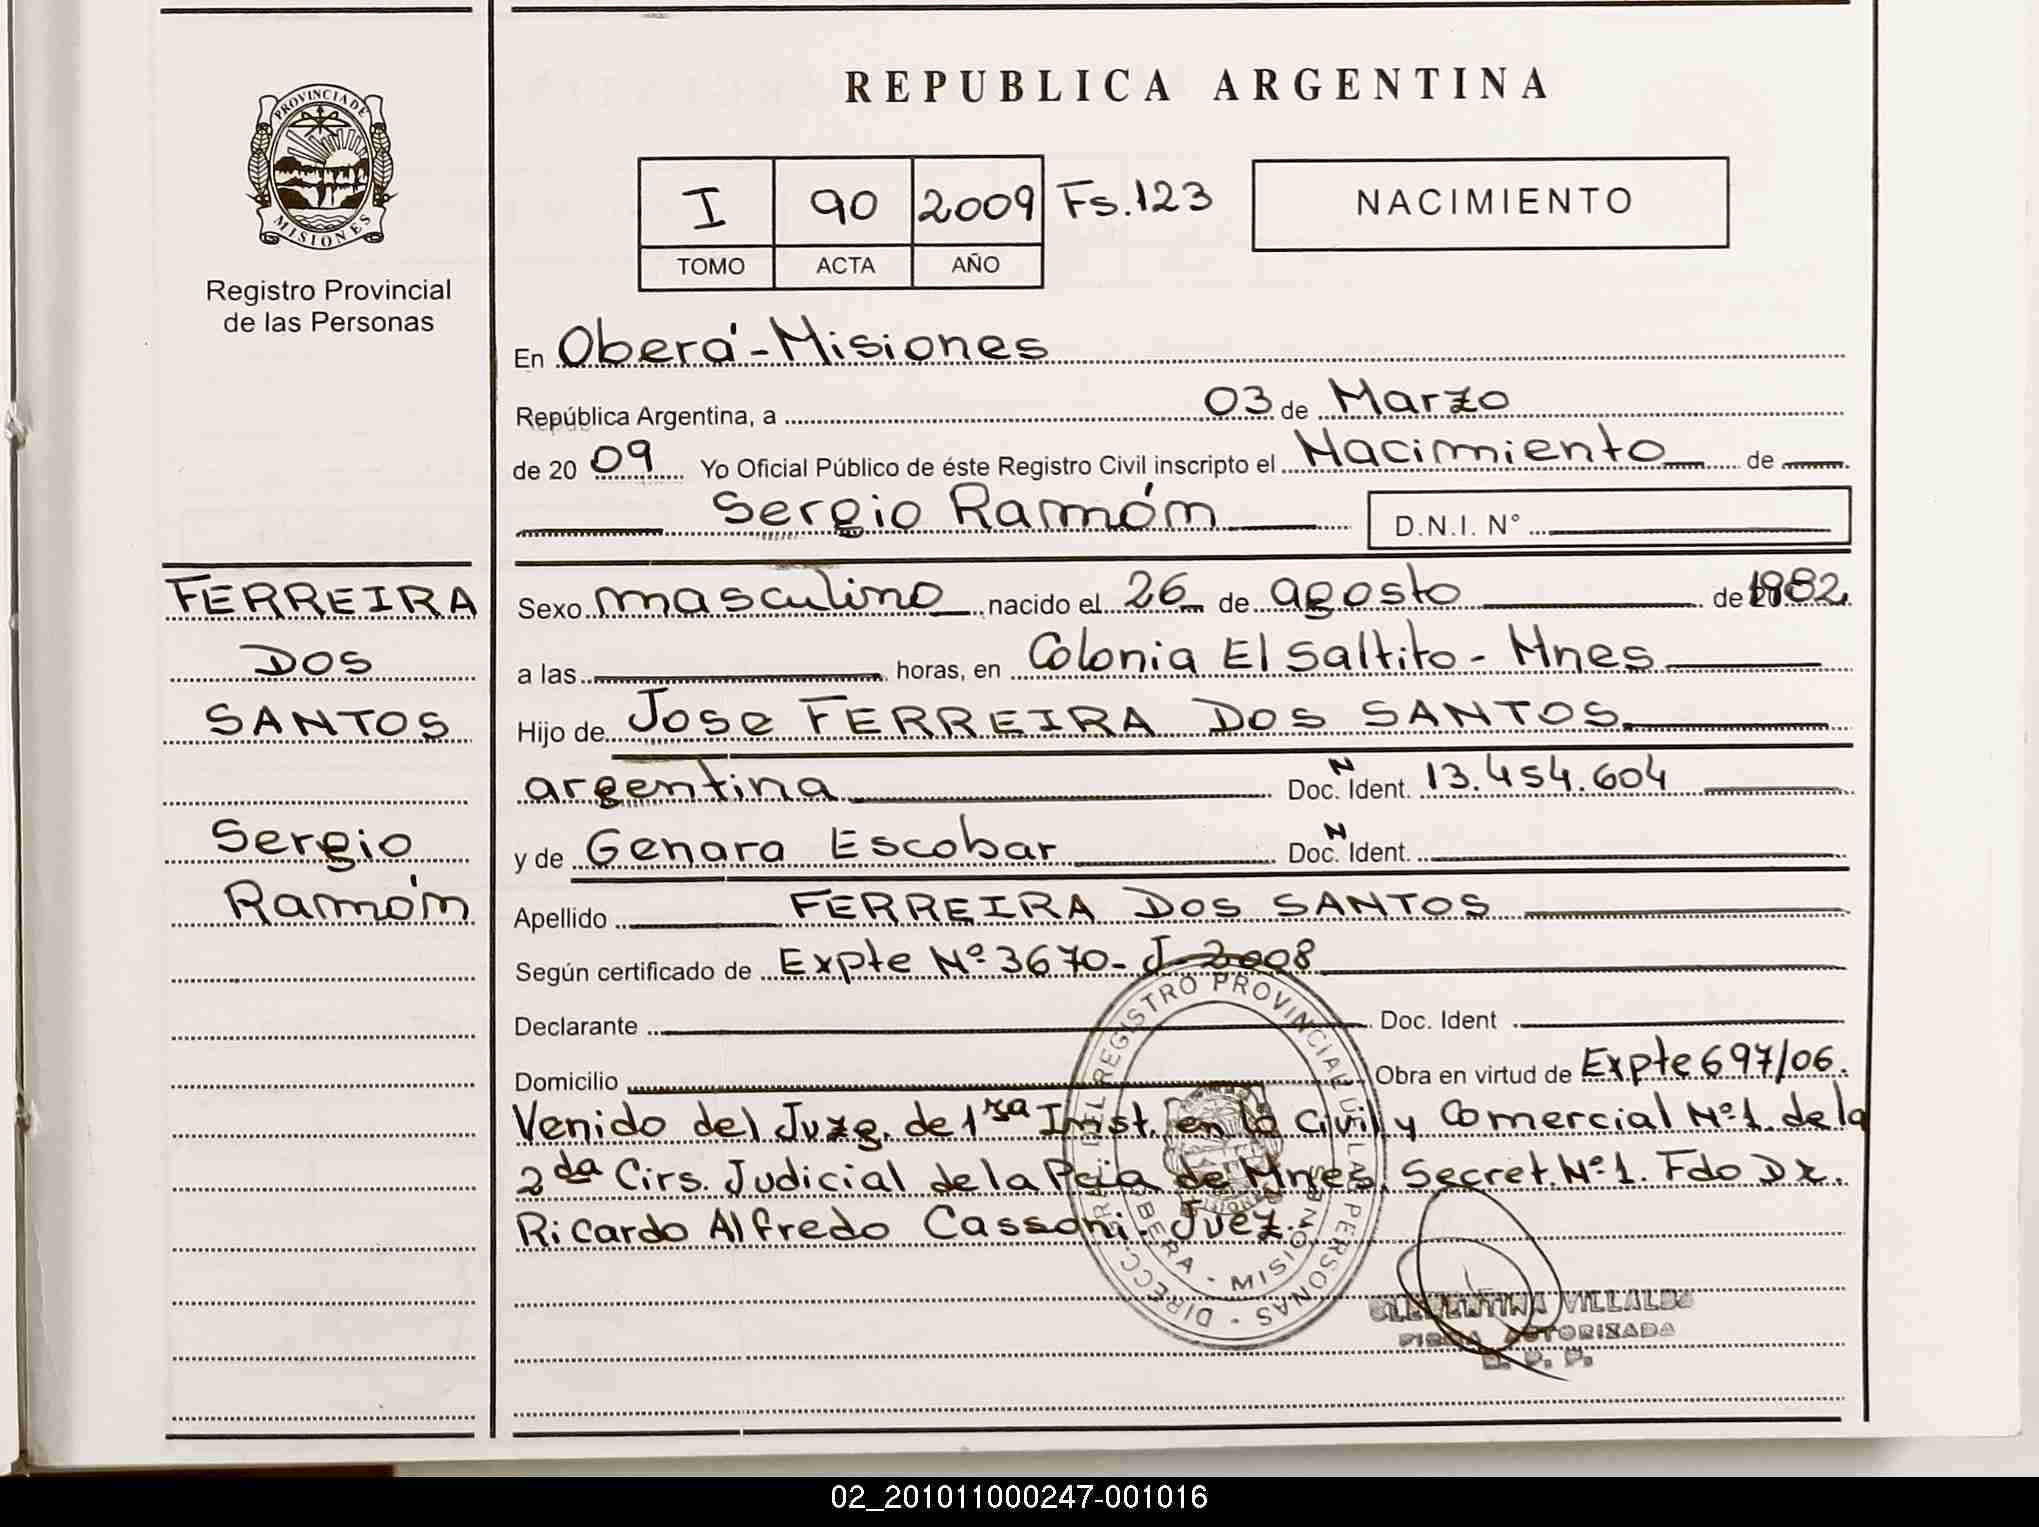 REPUBLICA ARGENTINA
PROVINCIA DE
MISIONES
Registro Provincial
de las Personas
I 90 2009 Fs.123
TOMO ACTA AÑO
NACIMIENTO
En Oberá-Misiones
República Argentina, a 03 de Marzo
de 20 09 Yo Oficial Público de éste Registro Civil inscripto el Nacimiento de
Sergio Ramón D.N.I. N°
FERREIRA
DOS
SANTOS
Sergio
Ramón
Sexo masculino nacido el 26 de agosto de 1982
a las horas, en Colonia El Saltito - Mnes
Hijo de Jose FERREIRA DOS SANTOS
argentina Doc. N Ident. 13.454.604
y de Genara Escobar Doc. N Ident.
Apellido FERREIRA DOS SANTOS
Según certificado de Expte Nº 3670-J-2008
Declarante Doc. Ident
Domicilio Obra en virtud de Expte 697/06.
Venido del Juzg. de 1ra Inst. en lo Civil y Comercial Nº1. de la
2da Cirs. Judicial de la Pcia de Mnes. Secret. Nº1. Fdo Dr.
Ricardo Alfredo Cassoni. Juez.
DIRECC. GRAL. DEL REGISTRO PROVINCIAL DE LAS PERSONAS
OBERA - MISIONES
CLEMENTINA VILLALBA
FIRMA AUTORIZADA
R. P. P.
02_201011000247-001016